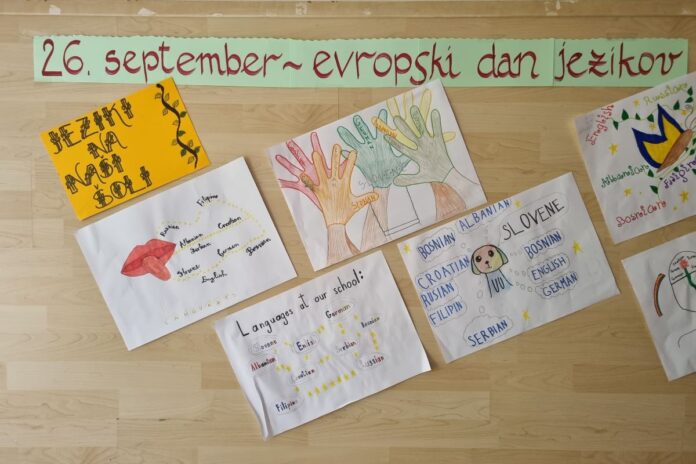 26. september ~ evropski dan jezikov
JEZIKI
NA
NAŠI
ŠOLI
Russian
Filipino
Albanian
Croatian
Serbian
German
Bosnian
Slovene
English
LANGUAGES
Languages at our school:
German
Slovene
Bosnian
Albanian
Serbian
Croatian
Russian
Filipino
ALBANIAN
SLOVENE
BOSNIAN
BOSNIAN
CROATIAN
ENGLISH
RUSIAN
GERMAN
FILIPIN
SERBIAN
Russian
English
Albanian
Bosnian